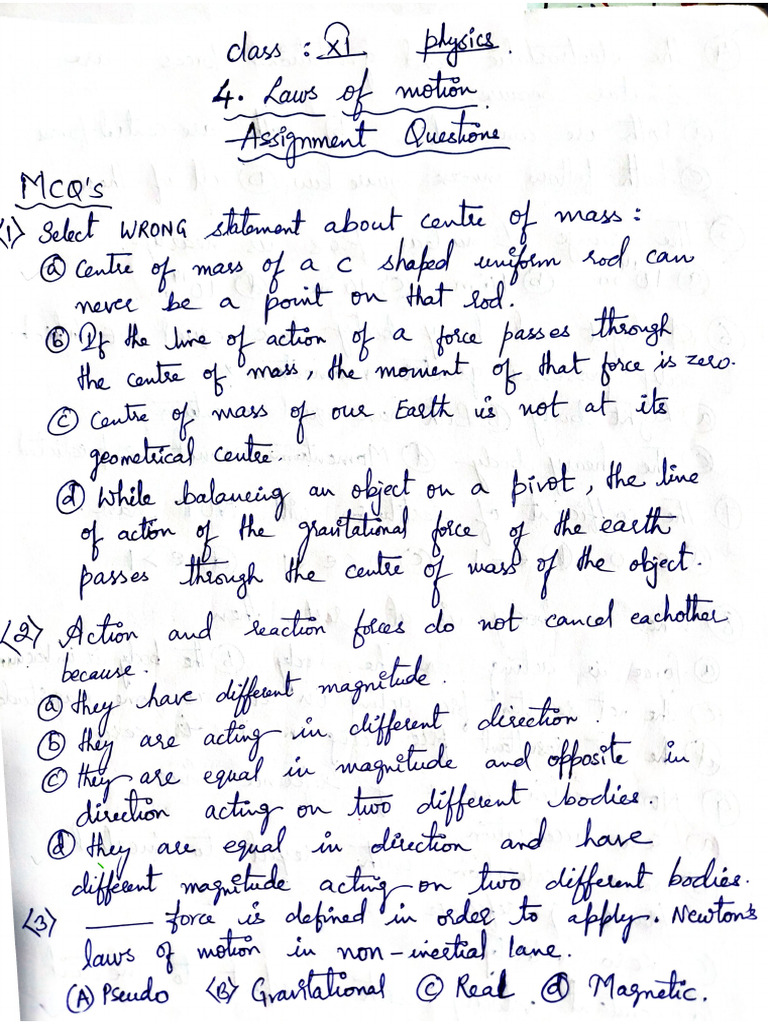 class : XI physics.
4. Laws of motion.
Assignment Questions
MCQ's
<1> Select WRONG statement about centre of mass :
(a) Centre of mass of a C shaped uniform rod can
never be a point on that rod.
(b) If the line of action of a force passes through
the centre of mass, the moment of that force is zero.
(c) Centre of mass of our Earth is not at its
geometrical centre.
(d) While balancing an object on a pivot, the line
of action of the gravitational force of the earth
passes through the centre of mass of the object.
<2> Action and reaction forces do not cancel eachother
because.
(a) they have different magnitude.
(b) they are acting in different direction.
(c) they are equal in magnitude and opposite in
direction acting on two different bodies.
(d) they are equal in direction and have
different magnitude acting on two different bodies.
<3> ____ force is defined in order to apply. Newton's
laws of motion in non-inertial lane.
(A) Pseudo <B> Gravitational (c) Real (d) Magnetic.